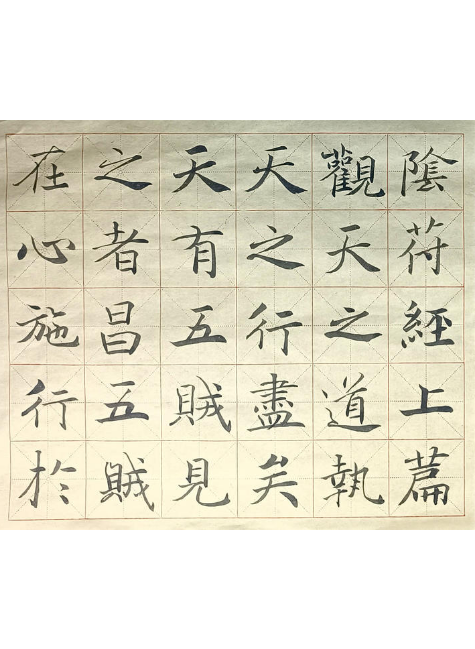 陰符經上篇
觀天之道執
天之行盡矣
天有五賊見
之者昌五賊
在心施行於